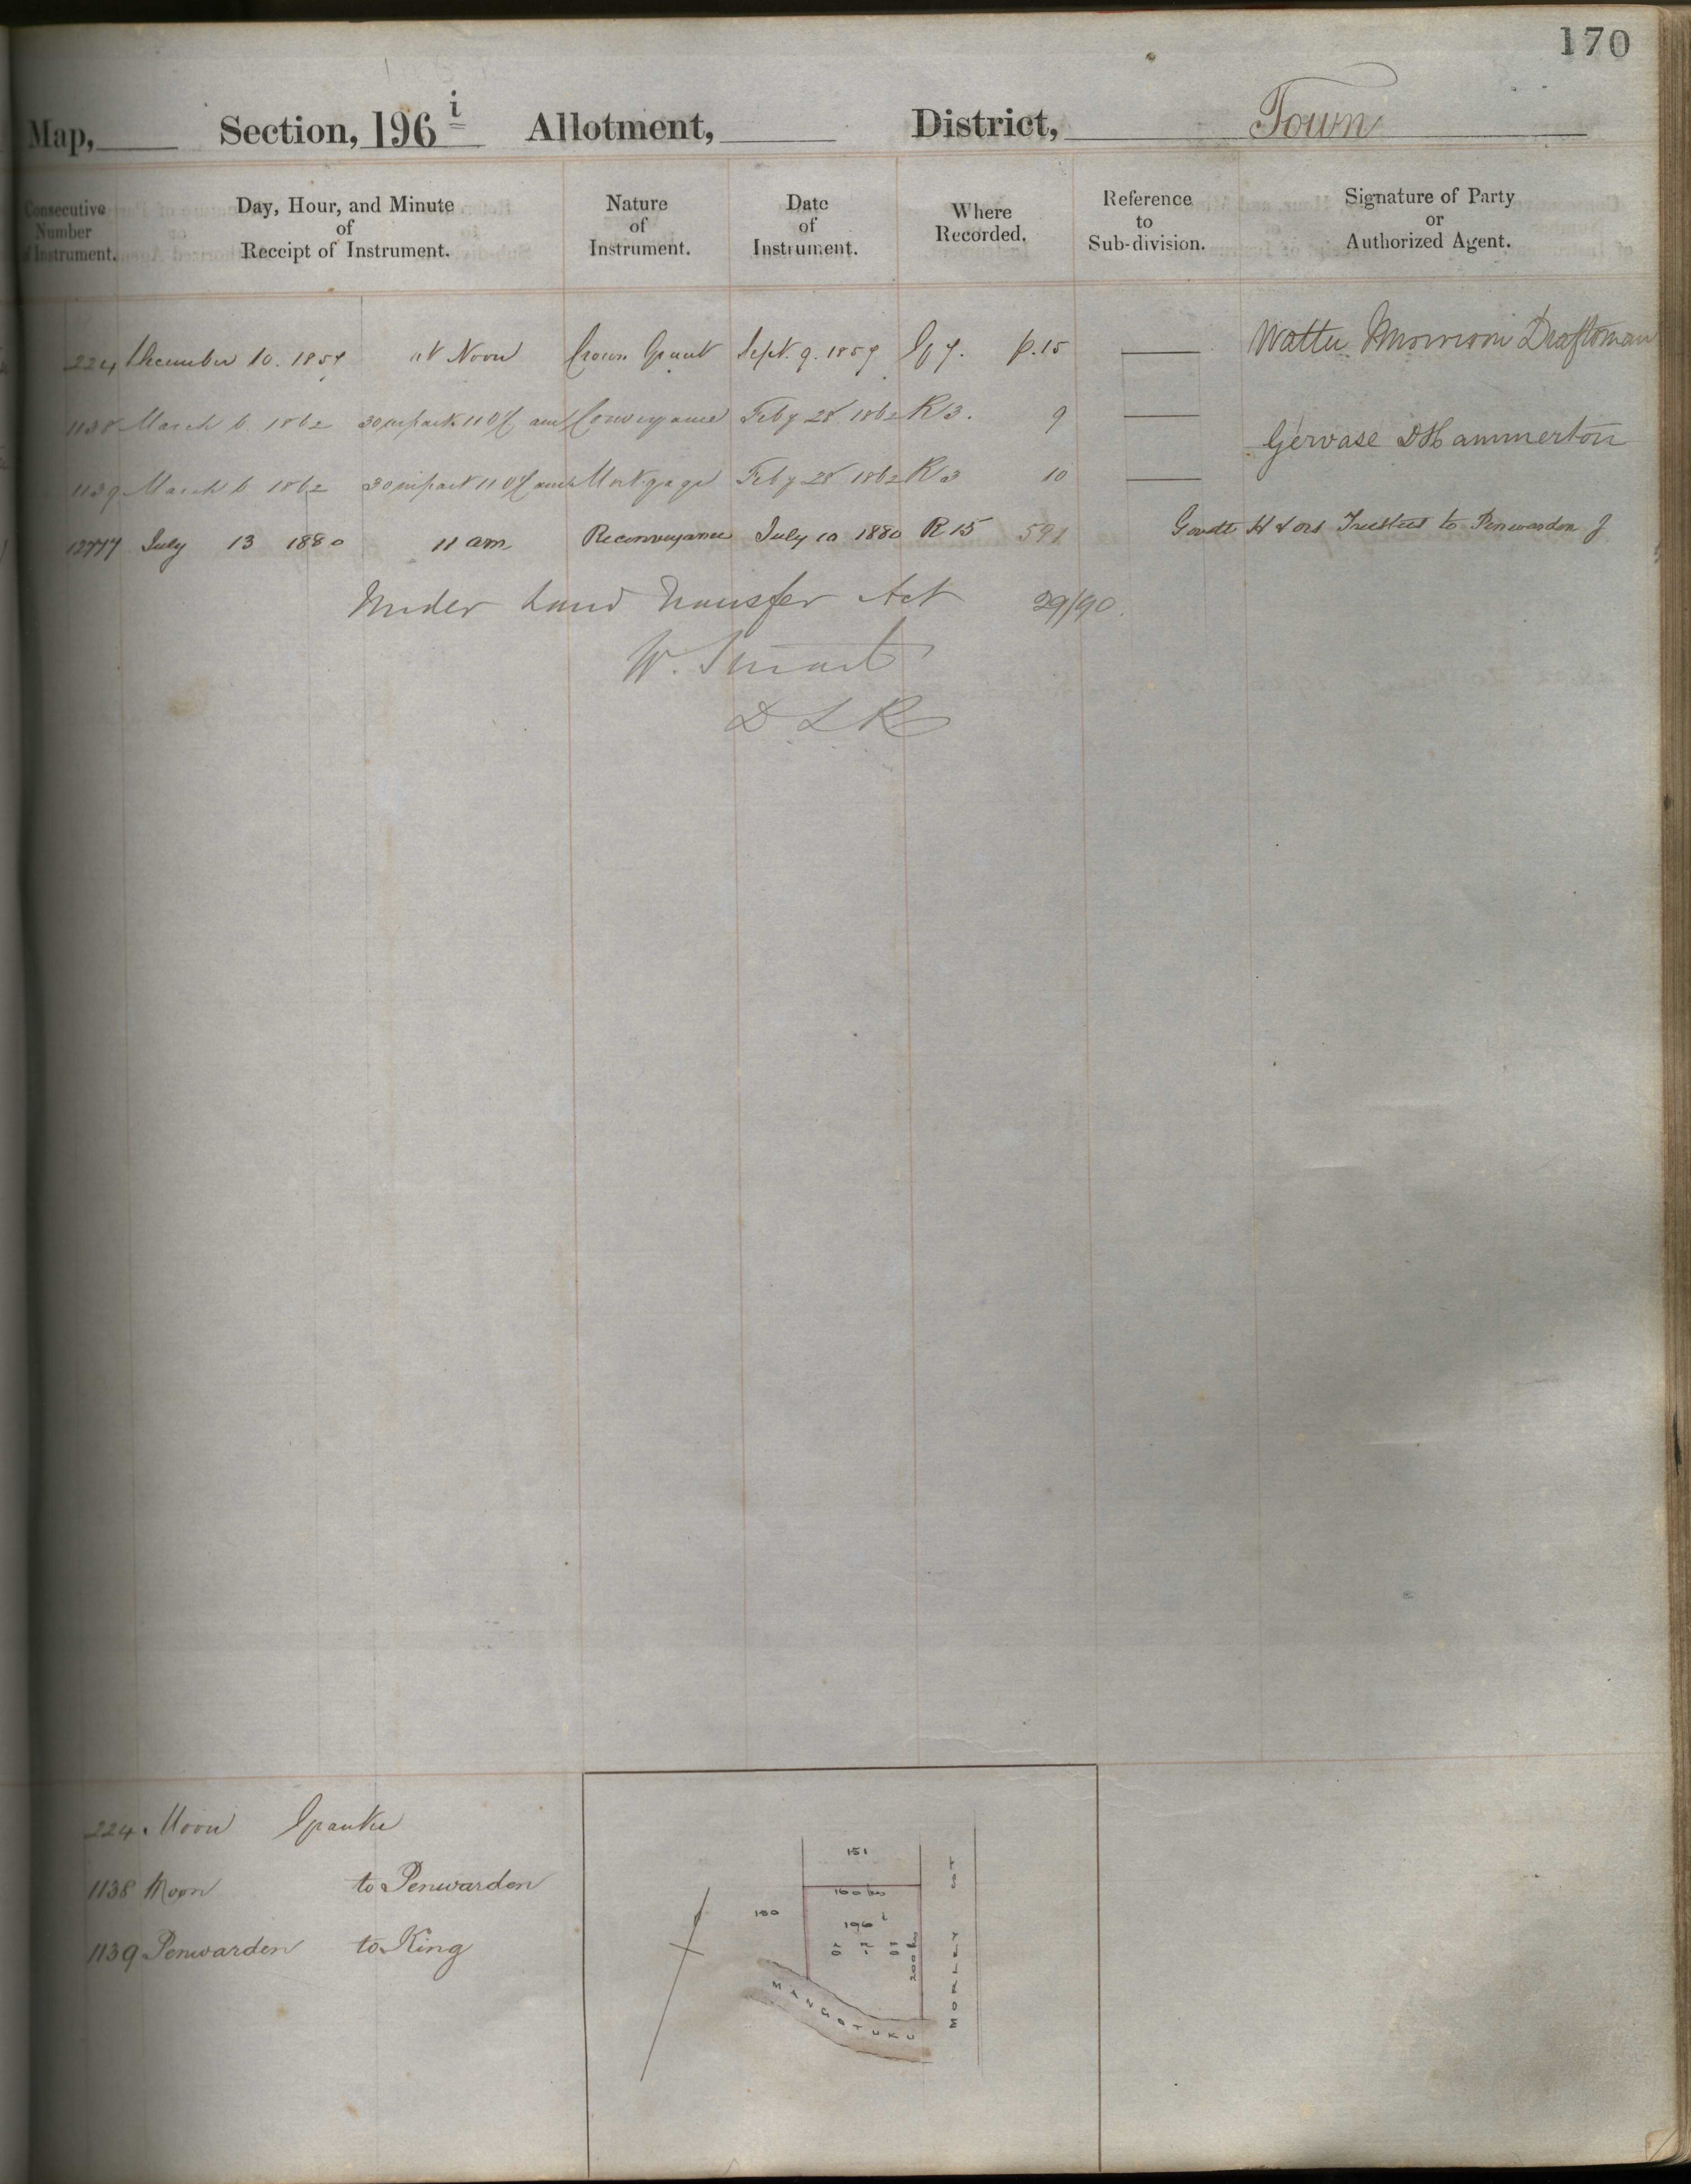 170
Map, Section, 196 i Allotment, District, Town
Consecutive Number of Instrument.
Day, Hour, and Minute of Receipt of Instrument.
Nature of Instrument.
Date of Instrument.
Where Recorded.
Reference to Sub-division.
Signature of Party or Authorized Agent.
224 December 10. 1859 at Noon Crown Grant Sept. 9. 1859 p. 15 Draftsman
1138 March 6 1862 30 m past 11 o'C am Conveyance Feby 28 1862 R 3. 9 Gervase D Hammerton
1139 March 6 1862 30 m past 11 o'C am Mortgage Feby 28 1862 R 3 10
12777 July 13 1880 11 am Reconveyance July 10 1880 R 15 591 Trustees to Penwarden J
Under Land Transfer Act 29/90.
W. Stuart
D L R
224 Moon Grantee
1138 Moon to Penwarden
1139 Penwarden to King
151
160 lks
150
196 i
200 lks
MORLEY ST
MANGOTUKU